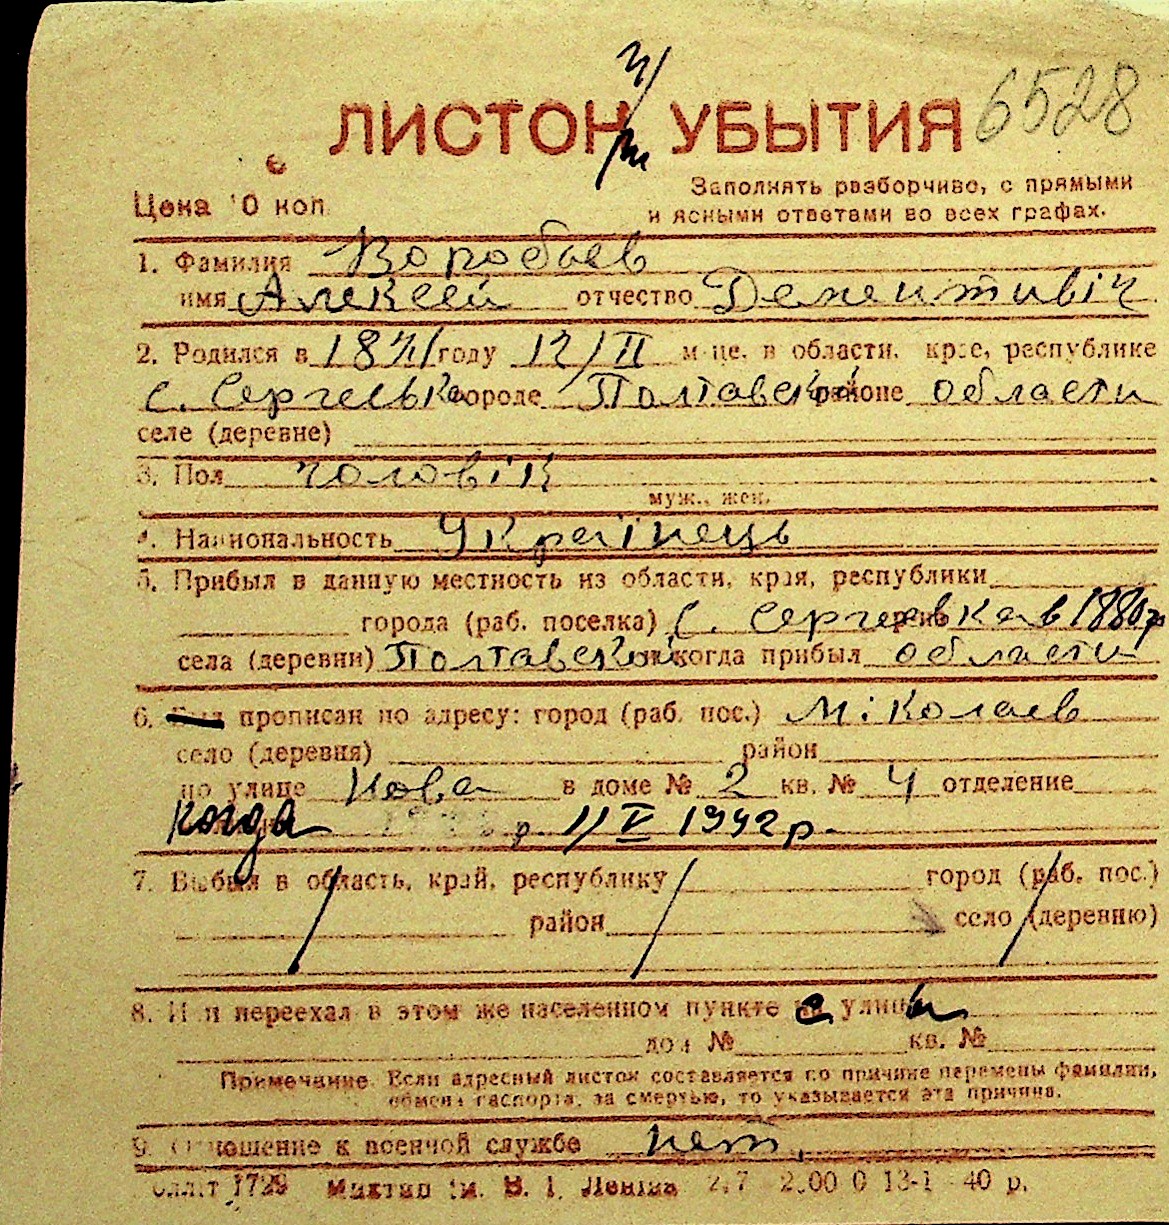 6528
ЛИСТОК УБЫТИЯ
Цена 10 коп
Заполнять разборчиво, с прямыми
и ясными ответами во всех графах.
1. Фамилия Воробьев
имя Алексей отчество
2. Родился в году 12/II м-це, в области, крае, республике
с. Сергеевка городе Полтавской районе области
селе (деревне)
3. Пол чоловік
муж., жен.
4. Национальность Українець
5. Прибыл в данную местность из области, края, республики
города (раб. поселка) с. Сергеевка в 1880 г
села (деревни) Полтавской и когда прибыл области
6. Был прописан по адресу: город (раб. пос.) Міколаев
село (деревня) район
по улице Нова в доме № 2 кв. № 4 отделение
когда р. 1/V 1942 р.
7. Выбыл в область, край, республику город (раб. пос.)
район село (деревню)
8. Или переехал в этом же населенном пункте с улицы
дом № кв. №
Примечание. Если адресный листок составляется по причине перемены фамилии,
обмена паспорта, за смертью, то указывается эта причина.
9. Отношение к военной службе нет.
Обллiт 1729 ім. В. І. Леніна 2.7 2.00 0 13-1 40 р.